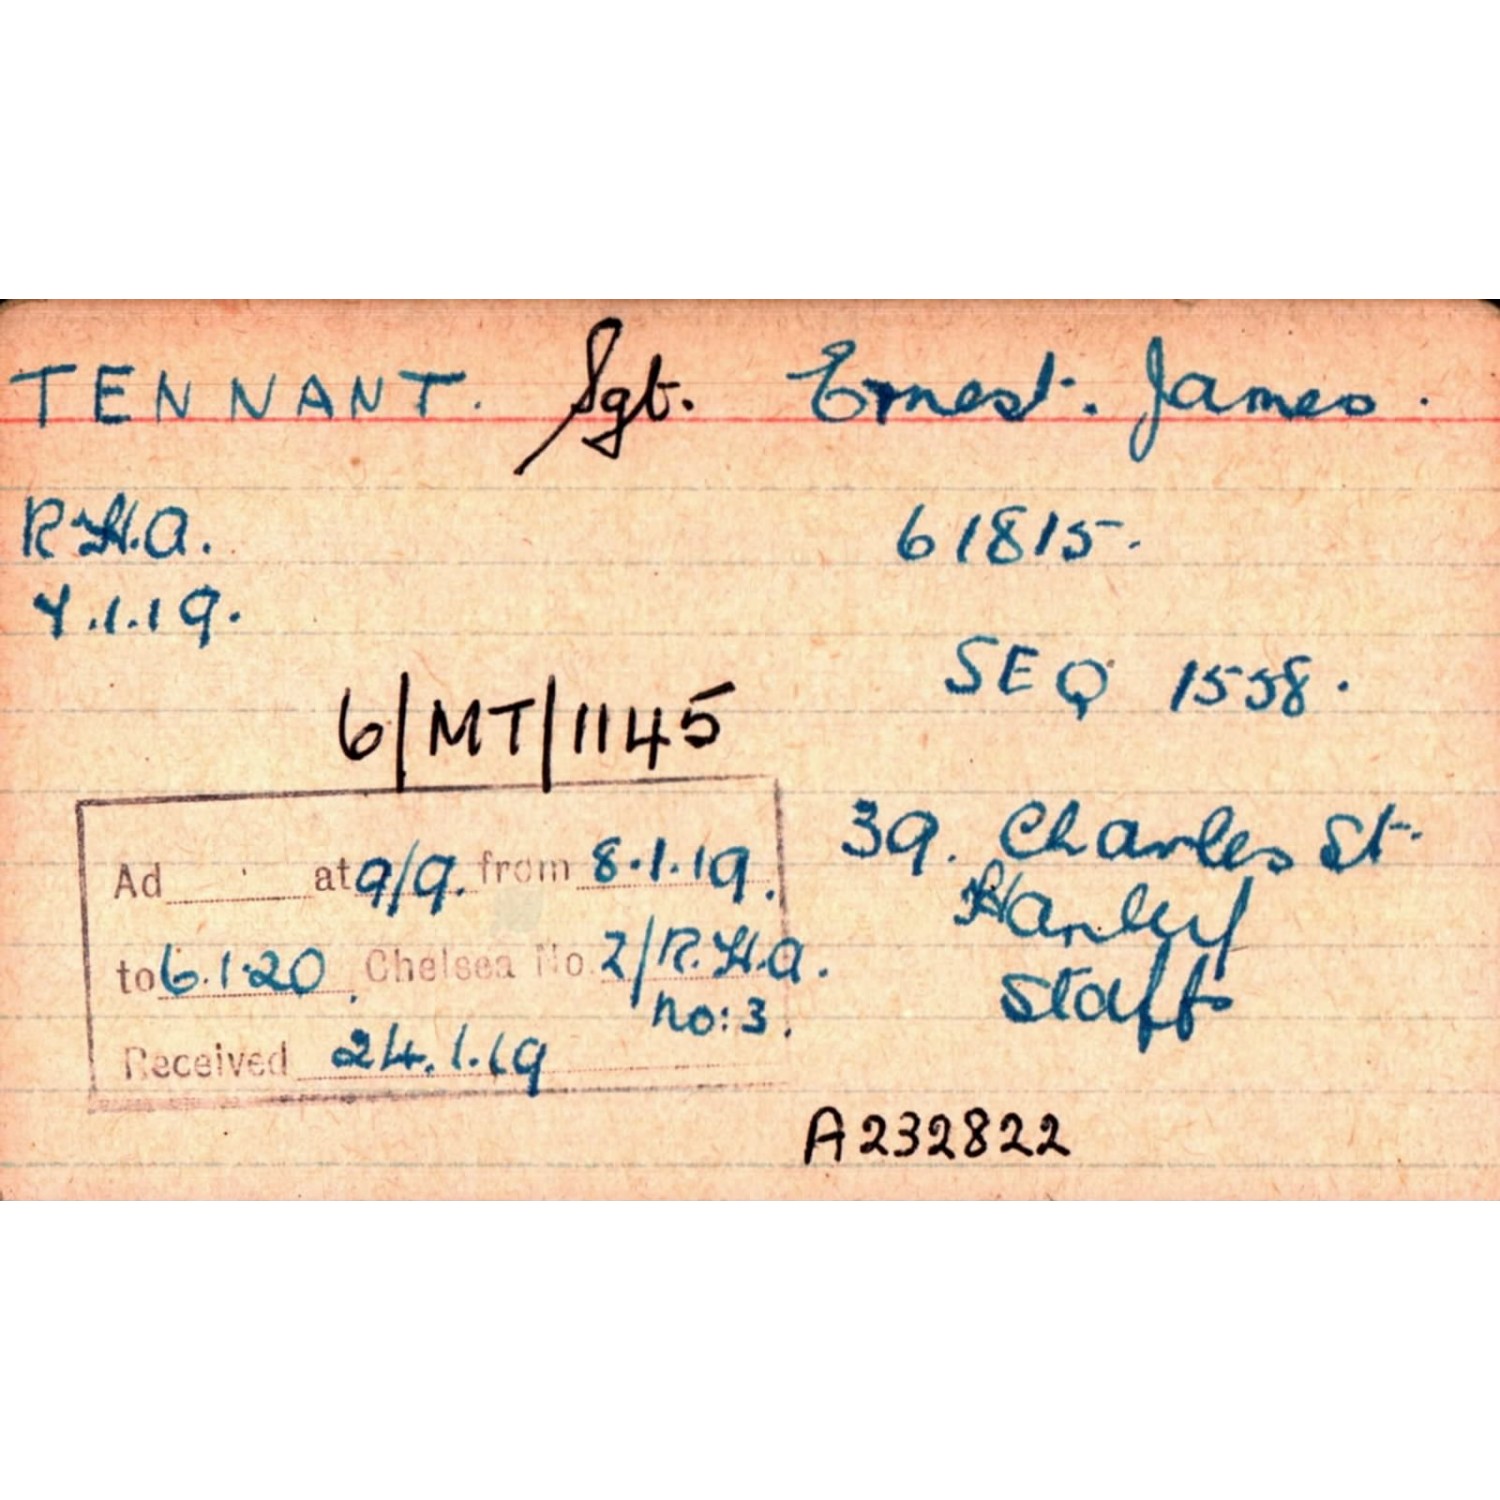 TENNANT. Sgt. Ernest. James.
R.H.A. 61815.
7.1.19.
SEQ 1558.
6/MT/1145
39. Charles St.
Hanley
Staffs
Ad at 9/9. from 8.1.19.
to 6.1.20. Chelsea No. 2/R.H.A.
no: 3.
Received 24.1.19
A232822